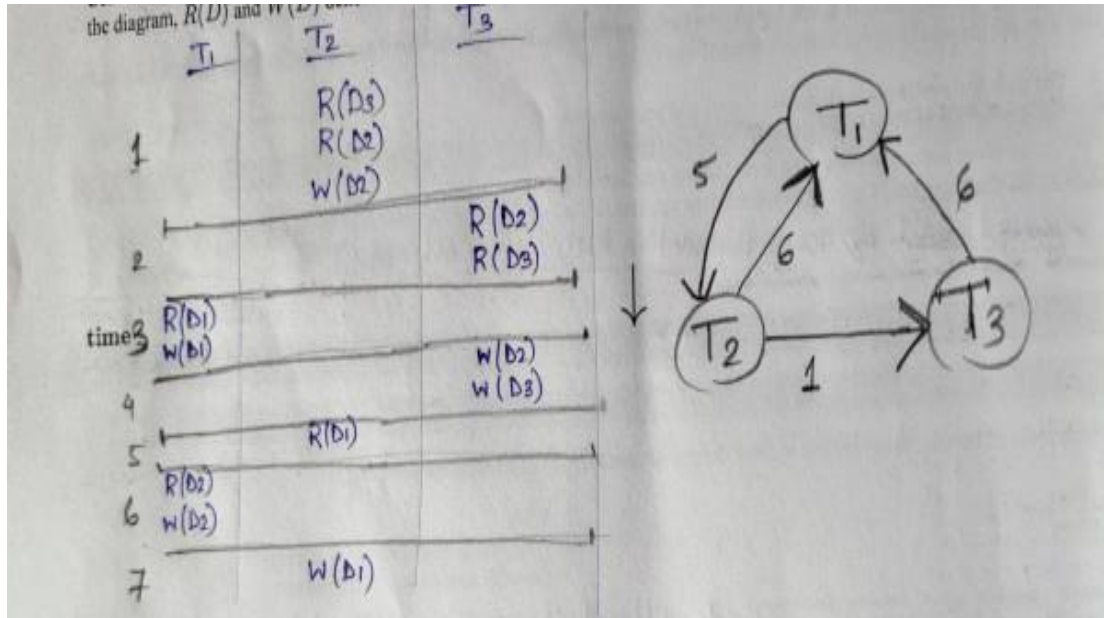 the diagram, R(D) and W(D)
T1 T2 T3
1
R(D3)
R(D2)
W(D2)
2
R(D2)
R(D3)
time 3
R(D1)
W(D1)
4
W(D2)
W(D3)
5
R(D1)
6
R(D2)
W(D2)
7
W(D1)
T1
5
6
6
T2
T3
1